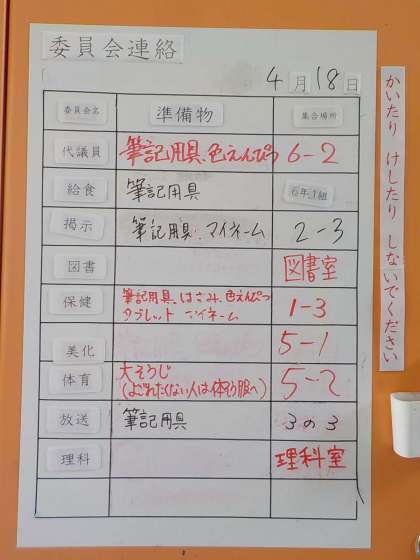 委員会連絡
4月18日
委員会名 準備物 集合場所
代議員 筆記用具、色えんぴつ 6-2
給食 筆記用具 6年1組
掲示 筆記用具、マイネーム 2-3
図書 図書室
保健 筆記用具、はさみ、色えんぴつ 1-3
タブレット マイネーム
美化 5-1
体育 大そうじ 5-2
(よごれたくない人は体そう服へ)
放送 筆記用具 3の3
理科 理科室
かいたり けしたり しないでください